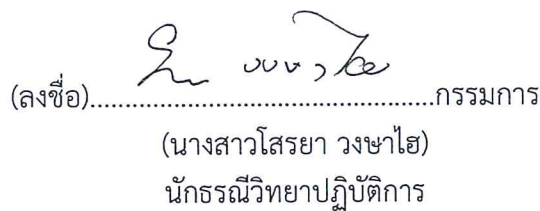 (ลงชื่อ)................................................กรรมการ
(นางสาวโสรยา วงษาไฮ)
นักธรณีวิทยาปฏิบัติการ